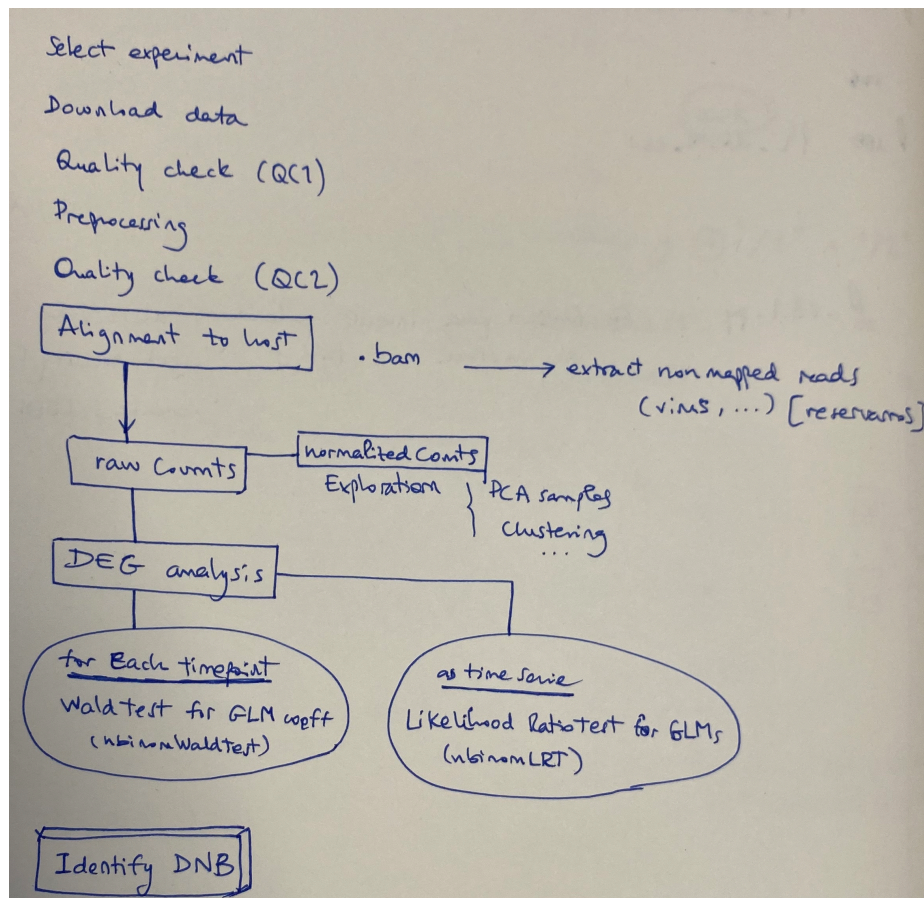 Select experiment
Download data
Quality check (QC1)
Preprocessing
Quality check (QC2)
Alignment to host
.bam → extract non mapped reads
(virus, ...) [reservamos]
raw counts
normalized counts
Exploration
PCA samples
clustering
...
DEG analysis
for Each timepoint
Wald test for GLM coeff
(nbinomWaldTest)
as time serie
Likelihood Ratio Test for GLMs
(nbinomLRT)
Identify DNB